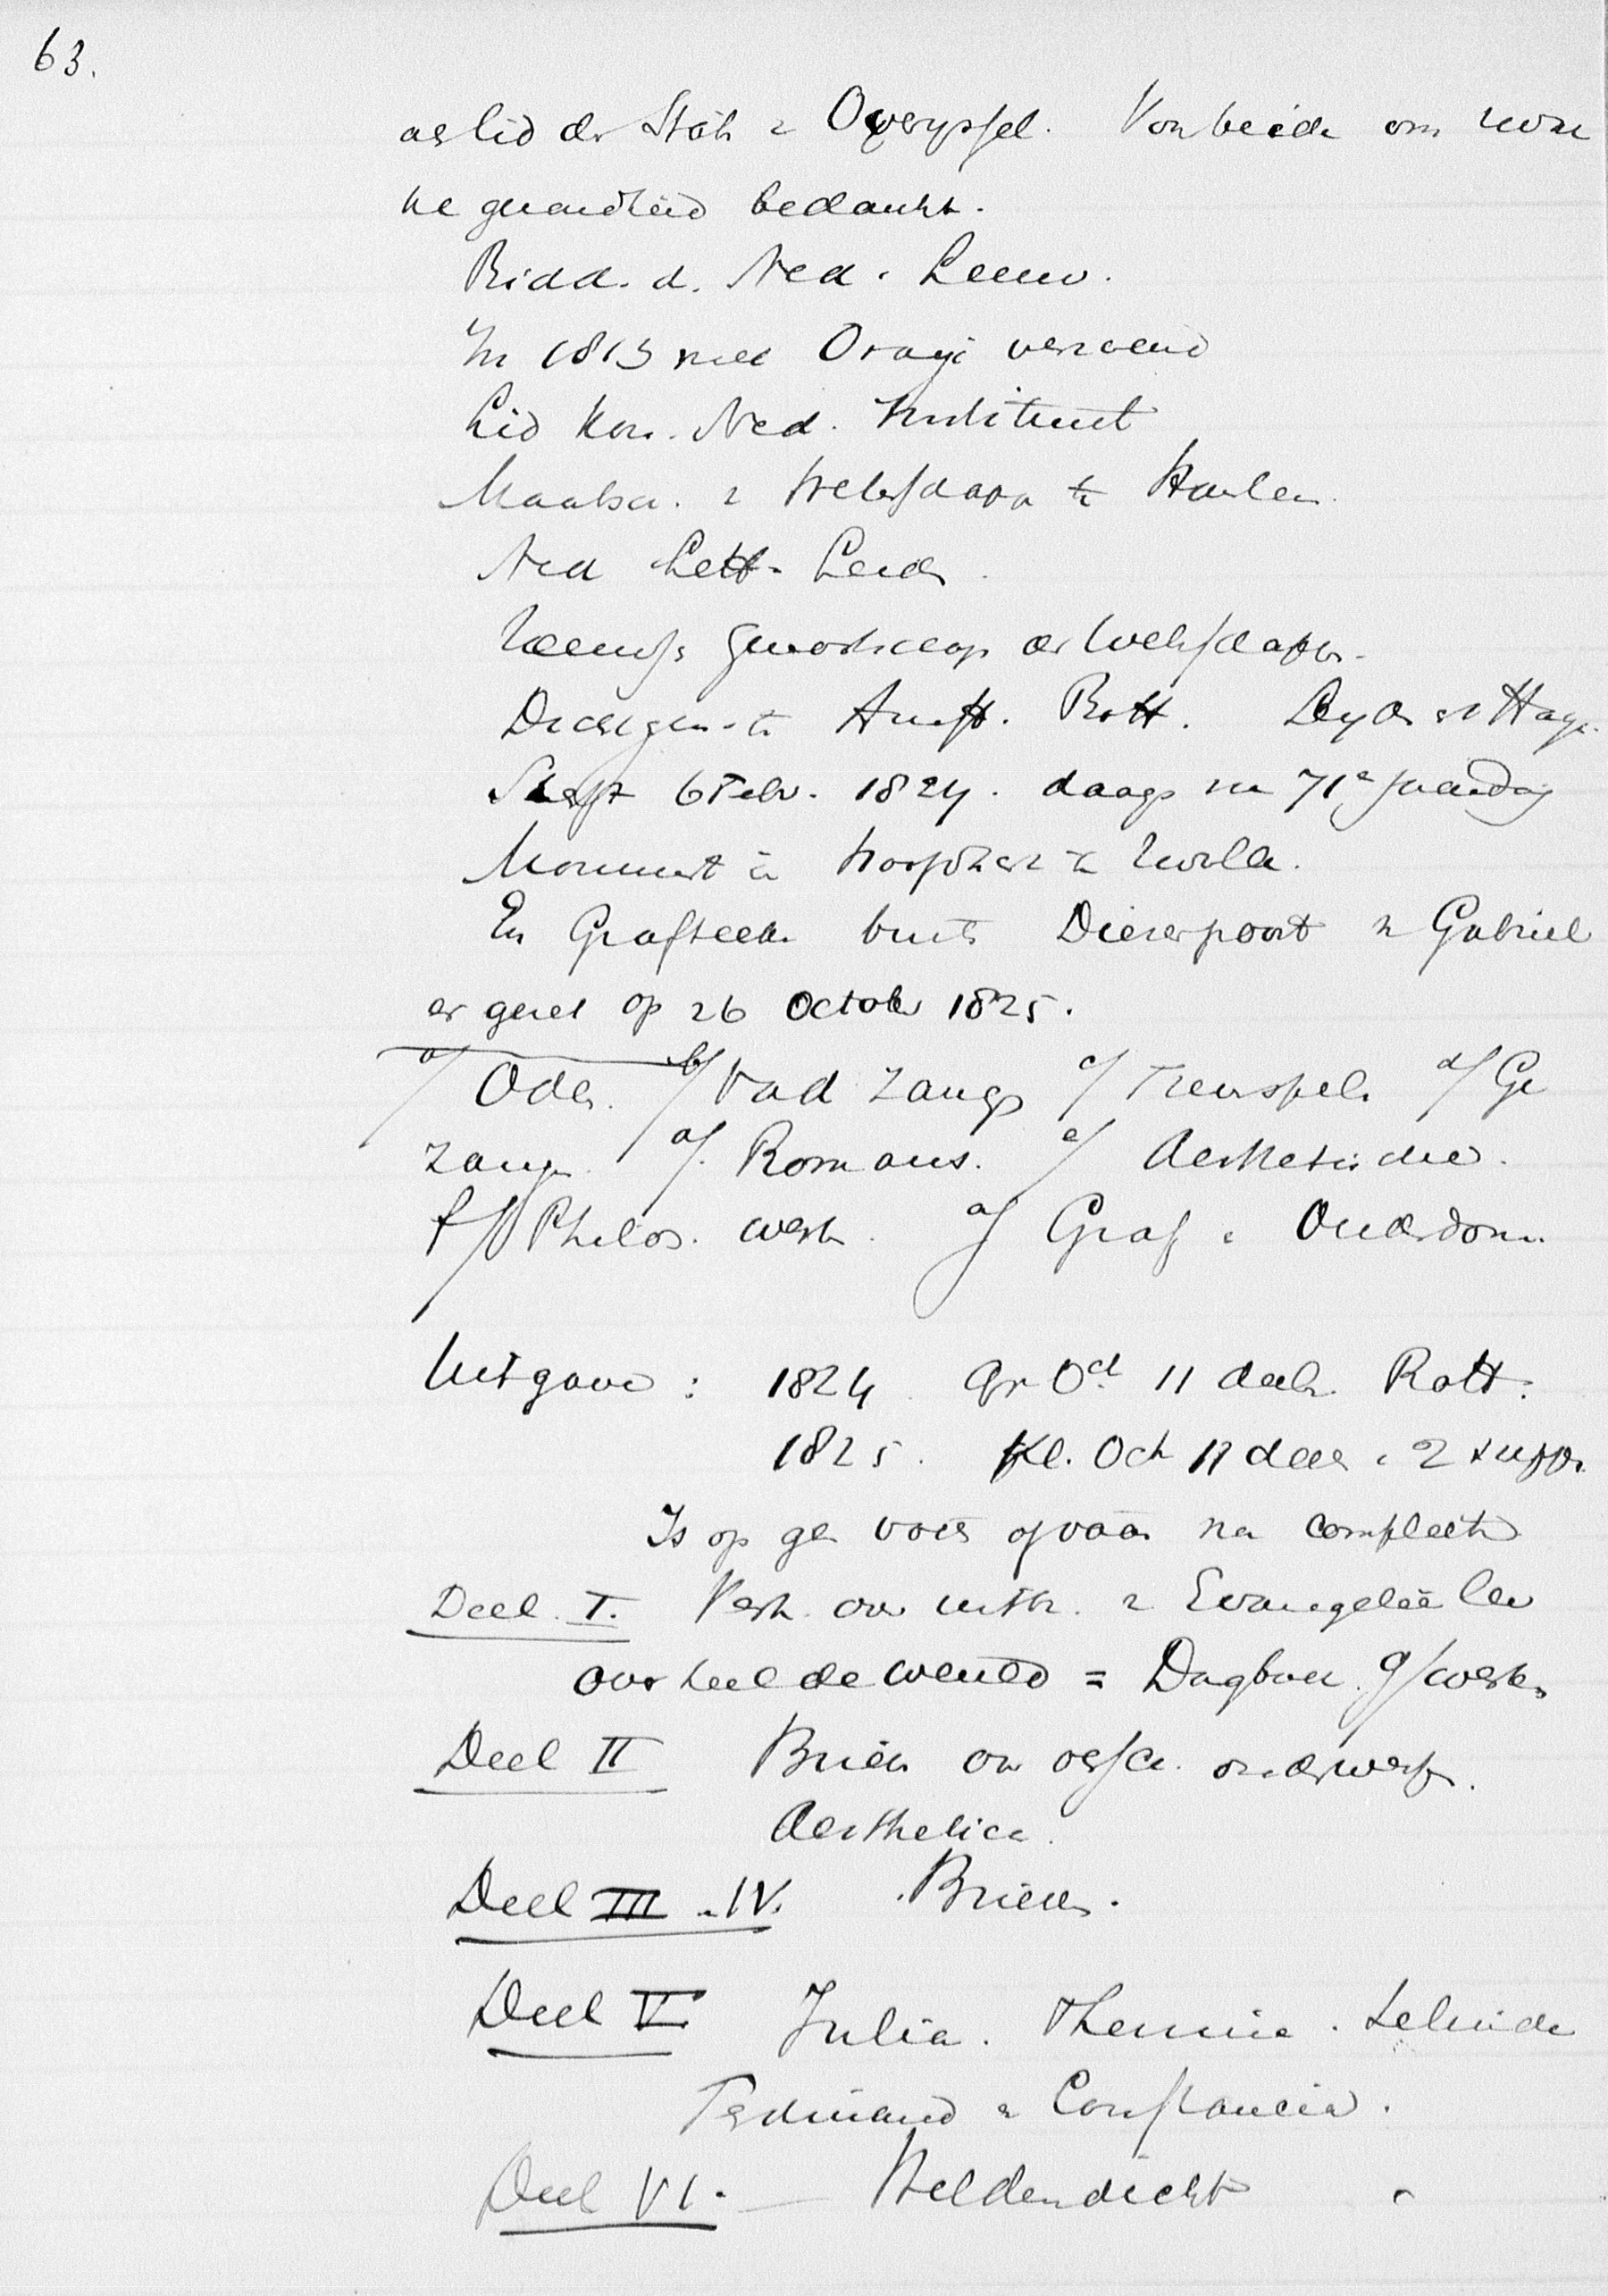 63.
als lid der Staten v Overyssel. Van beide om zwak
ke gezondheid bedankt.
Ridd. d. Ned. Leeuw.
In 1813 met Oranje verzoend
Lid Kon. Ned. Instituut
Maatsch. v Wetensch te Haarlem.
Ned Lett. Leiden.
Zeeuwsch Genootschap der Wetensch.
Dichtgen. te Amst. Rott. Leyden en Hage.
Sterft 6 Febr. 1824. daags na 71e jaardag
Monument in Hoofdkerk te Zwolle.
En Grafteeken buiten Diezerpoort v Gabriel
er gezet op 26 October 1825.
a/ Oden. b/ Vad zangen c/ Treurspelen d/ Ge
zangen. a/. Romans. e/ Aesthetische.
f/ Philos. werken. a/ Graf. Ouderdom.
Uitgave : 1824 Gr Oct 11 deelen Rott.
1825. Kl. Oct 11 deelen. 2 suppl.
Is op na compleet
Deel I. Verh. over v Evangelieleer
over heel de wereld = Dagboek. g/werken
Deel II Brieven over versch. onderwerpen.
Aesthetica.
Deel III - IV. Brieven.
Deel V Julia. Themire. Selinde
Ferdinand en Constancia.
Deel VI. - Heldendicht